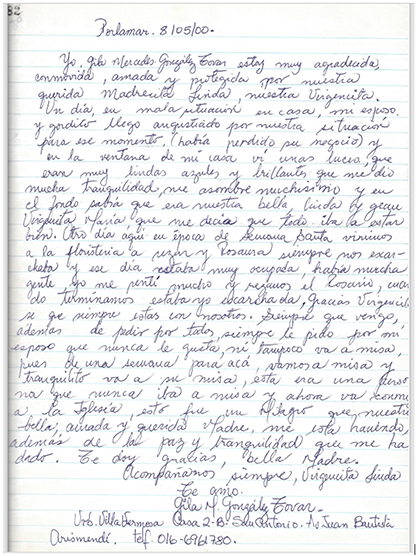 82
Porlamar. 8/05/00.
Yo, Gila Mercedes González Tovar estoy muy agradecida,
conmovida, amada y protegida por nuestra
querida Madrecita Linda, nuestra Virgencita.
Un día, en mala situación en casa, mi esposo
y gordito llego angustiado por nuestra situación
para ese momento, (había perdido su negocio) y
en la ventana de mi casa vi unas luces, que
eran muy lindas azules y brillantes, que me dio
mucha tranquilidad, me asombre muchisimo y en
el fondo sabía que era nuestra bella, linda y
Virgencita María que me decia que todo iba a estar
bien. Otro día aquí en época de Semana Santa vinimos
a la floristeria a rezar y Rosaura siempre nos
y ese día estaba muy ocupada, había mucha
gente yo me senti mucho y rezamos el Rosario,
do terminamos estaba yo escarchada, Gracias Virgencita
se que siempre estas con nosotros. Siempre que vengo,
además de pedir por todos, siempre le pido por mi
esposo que nunca le gusta, ni tampoco va a misa,
pues de una semana para acá, vamos a misa y
tranquilito va a su misa, esta era una perso
na que nunca iba a misa y ahora va conmi
a la Iglesia, esto fue un Milagro que nuestra
bella, amada y querida Madre, me esta haciendo,
además de la paz y tranquilidad que me ha
dado Te doy gracias, bella Madre.
Acompáñanos siempre, Virgencita Linda
Te amo.
Gila M. González Tovar.
Urb. Villa Hermosa Casa 2-B. San Antonio. Av Juan Bautista
Arismendi. telf. 016-6961780.